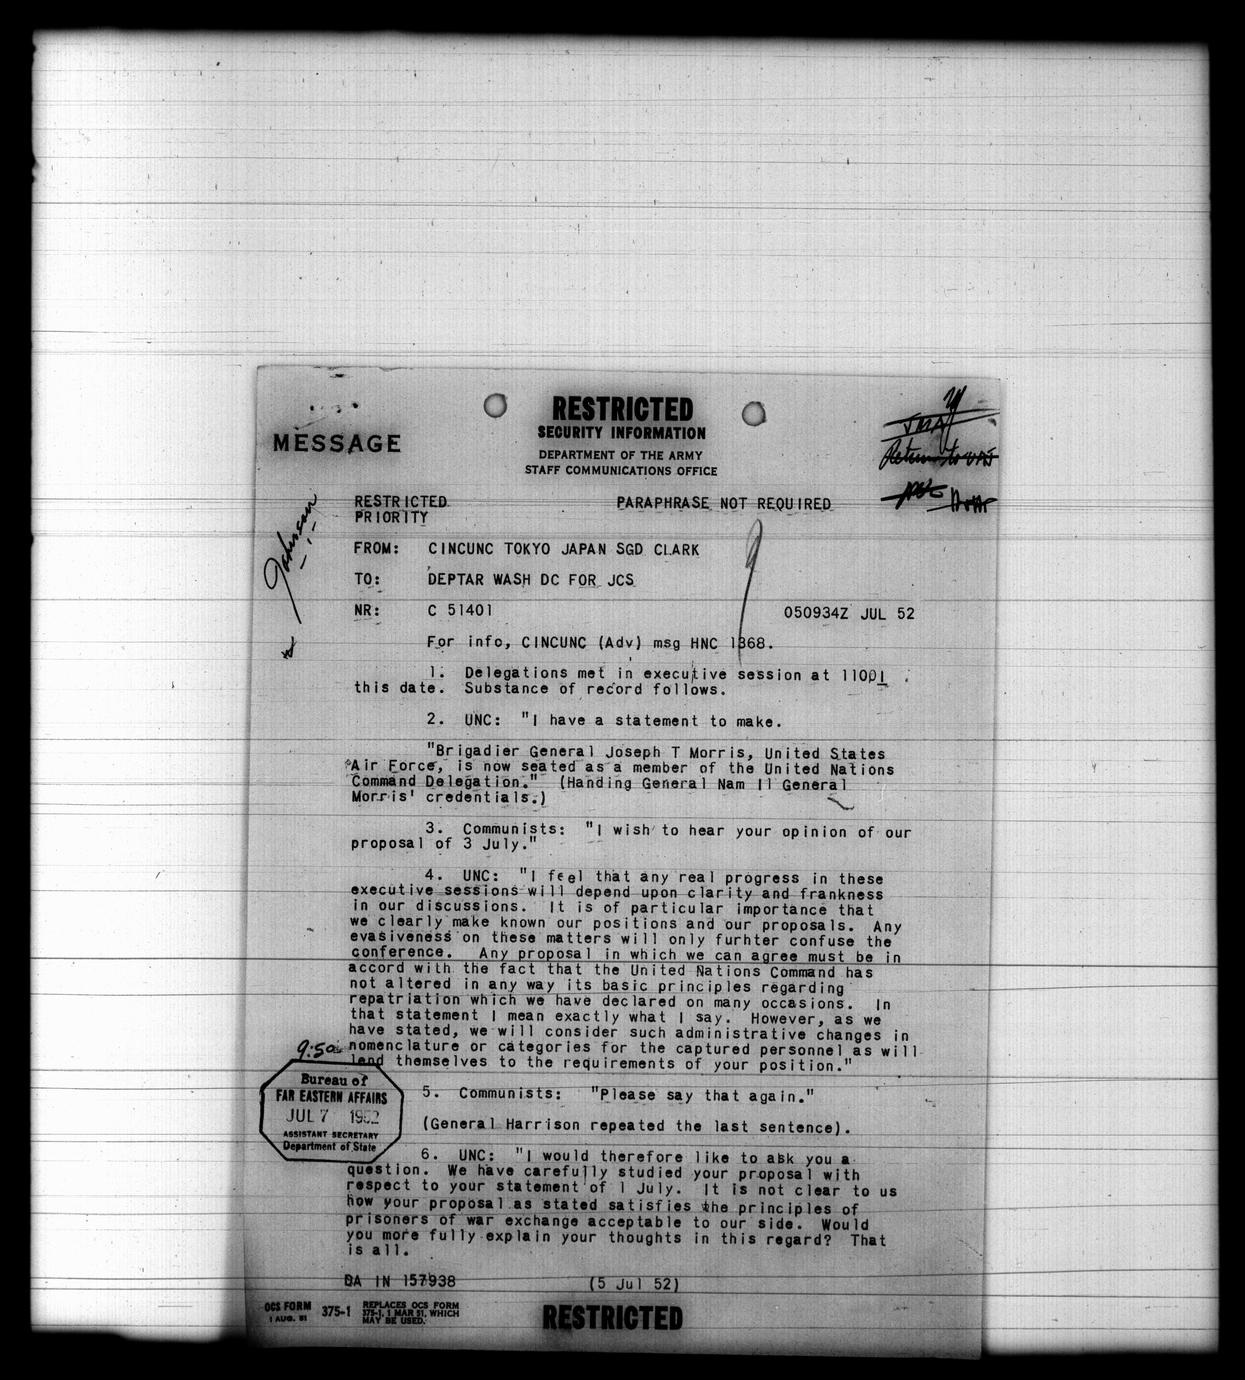 RESTRICTED
SECURITY INFORMATION
DEPARTMENT OF THE ARMY
STAFF COMMUNICATIONS OFFICE
MESSAGE
Return to
Johnson
RESTRICTED PARAPHRASE NOT REQUIRED
PRIORITY
FROM: CINCUNC TOKYO JAPAN SGD CLARK
TO: DEPTAR WASH DC FOR JCS
NR: C 51401 050934Z JUL 52
For info, CINCUNC (Adv) msg HNC 1368.
1. Delegations met in executive session at 1100I
this date. Substance of record follows.
2. UNC: "I have a statement to make.
"Brigadier General Joseph T Morris, United States
Air Force, is now seated as a member of the United Nations
Command Delegation." (Handing General Nam Il General
Morris' credentials.)
3. Communists: "I wish to hear your opinion of our
proposal of 3 July."
4. UNC: "I feel that any real progress in these
executive sessions will depend upon clarity and frankness
in our discussions. It is of particular importance that
we clearly make known our positions and our proposals. Any
evasiveness on these matters will only furhter confuse the
conference. Any proposal in which we can agree must be in
accord with the fact that the United Nations Command has
not altered in any way its basic principles regarding
repatriation which we have declared on many occasions. In
that statement I mean exactly what I say. However, as we
have stated, we will consider such administrative changes in
nomenclature or categories for the captured personnel as will
lend themselves to the requirements of your position."
9:50
Bureau of
FAR EASTERN AFFAIRS
JUL 7 1952
ASSISTANT SECRETARY
Department of State
5. Communists: "Please say that again."
(General Harrison repeated the last sentence).
6. UNC: "I would therefore like to ask you a
question. We have carefully studied your proposal with
respect to your statement of 1 July. It is not clear to us
how your proposal as stated satisfies the principles of
prisoners of war exchange acceptable to our side. Would
you more fully explain your thoughts in this regard? That
is all.
DA IN 157938 (5 Jul 52)
OCS FORM 375-1 REPLACES OCS FORM
1 AUG. 51 375-1, 1 MAR 51, WHICH
MAY BE USED.
RESTRICTED